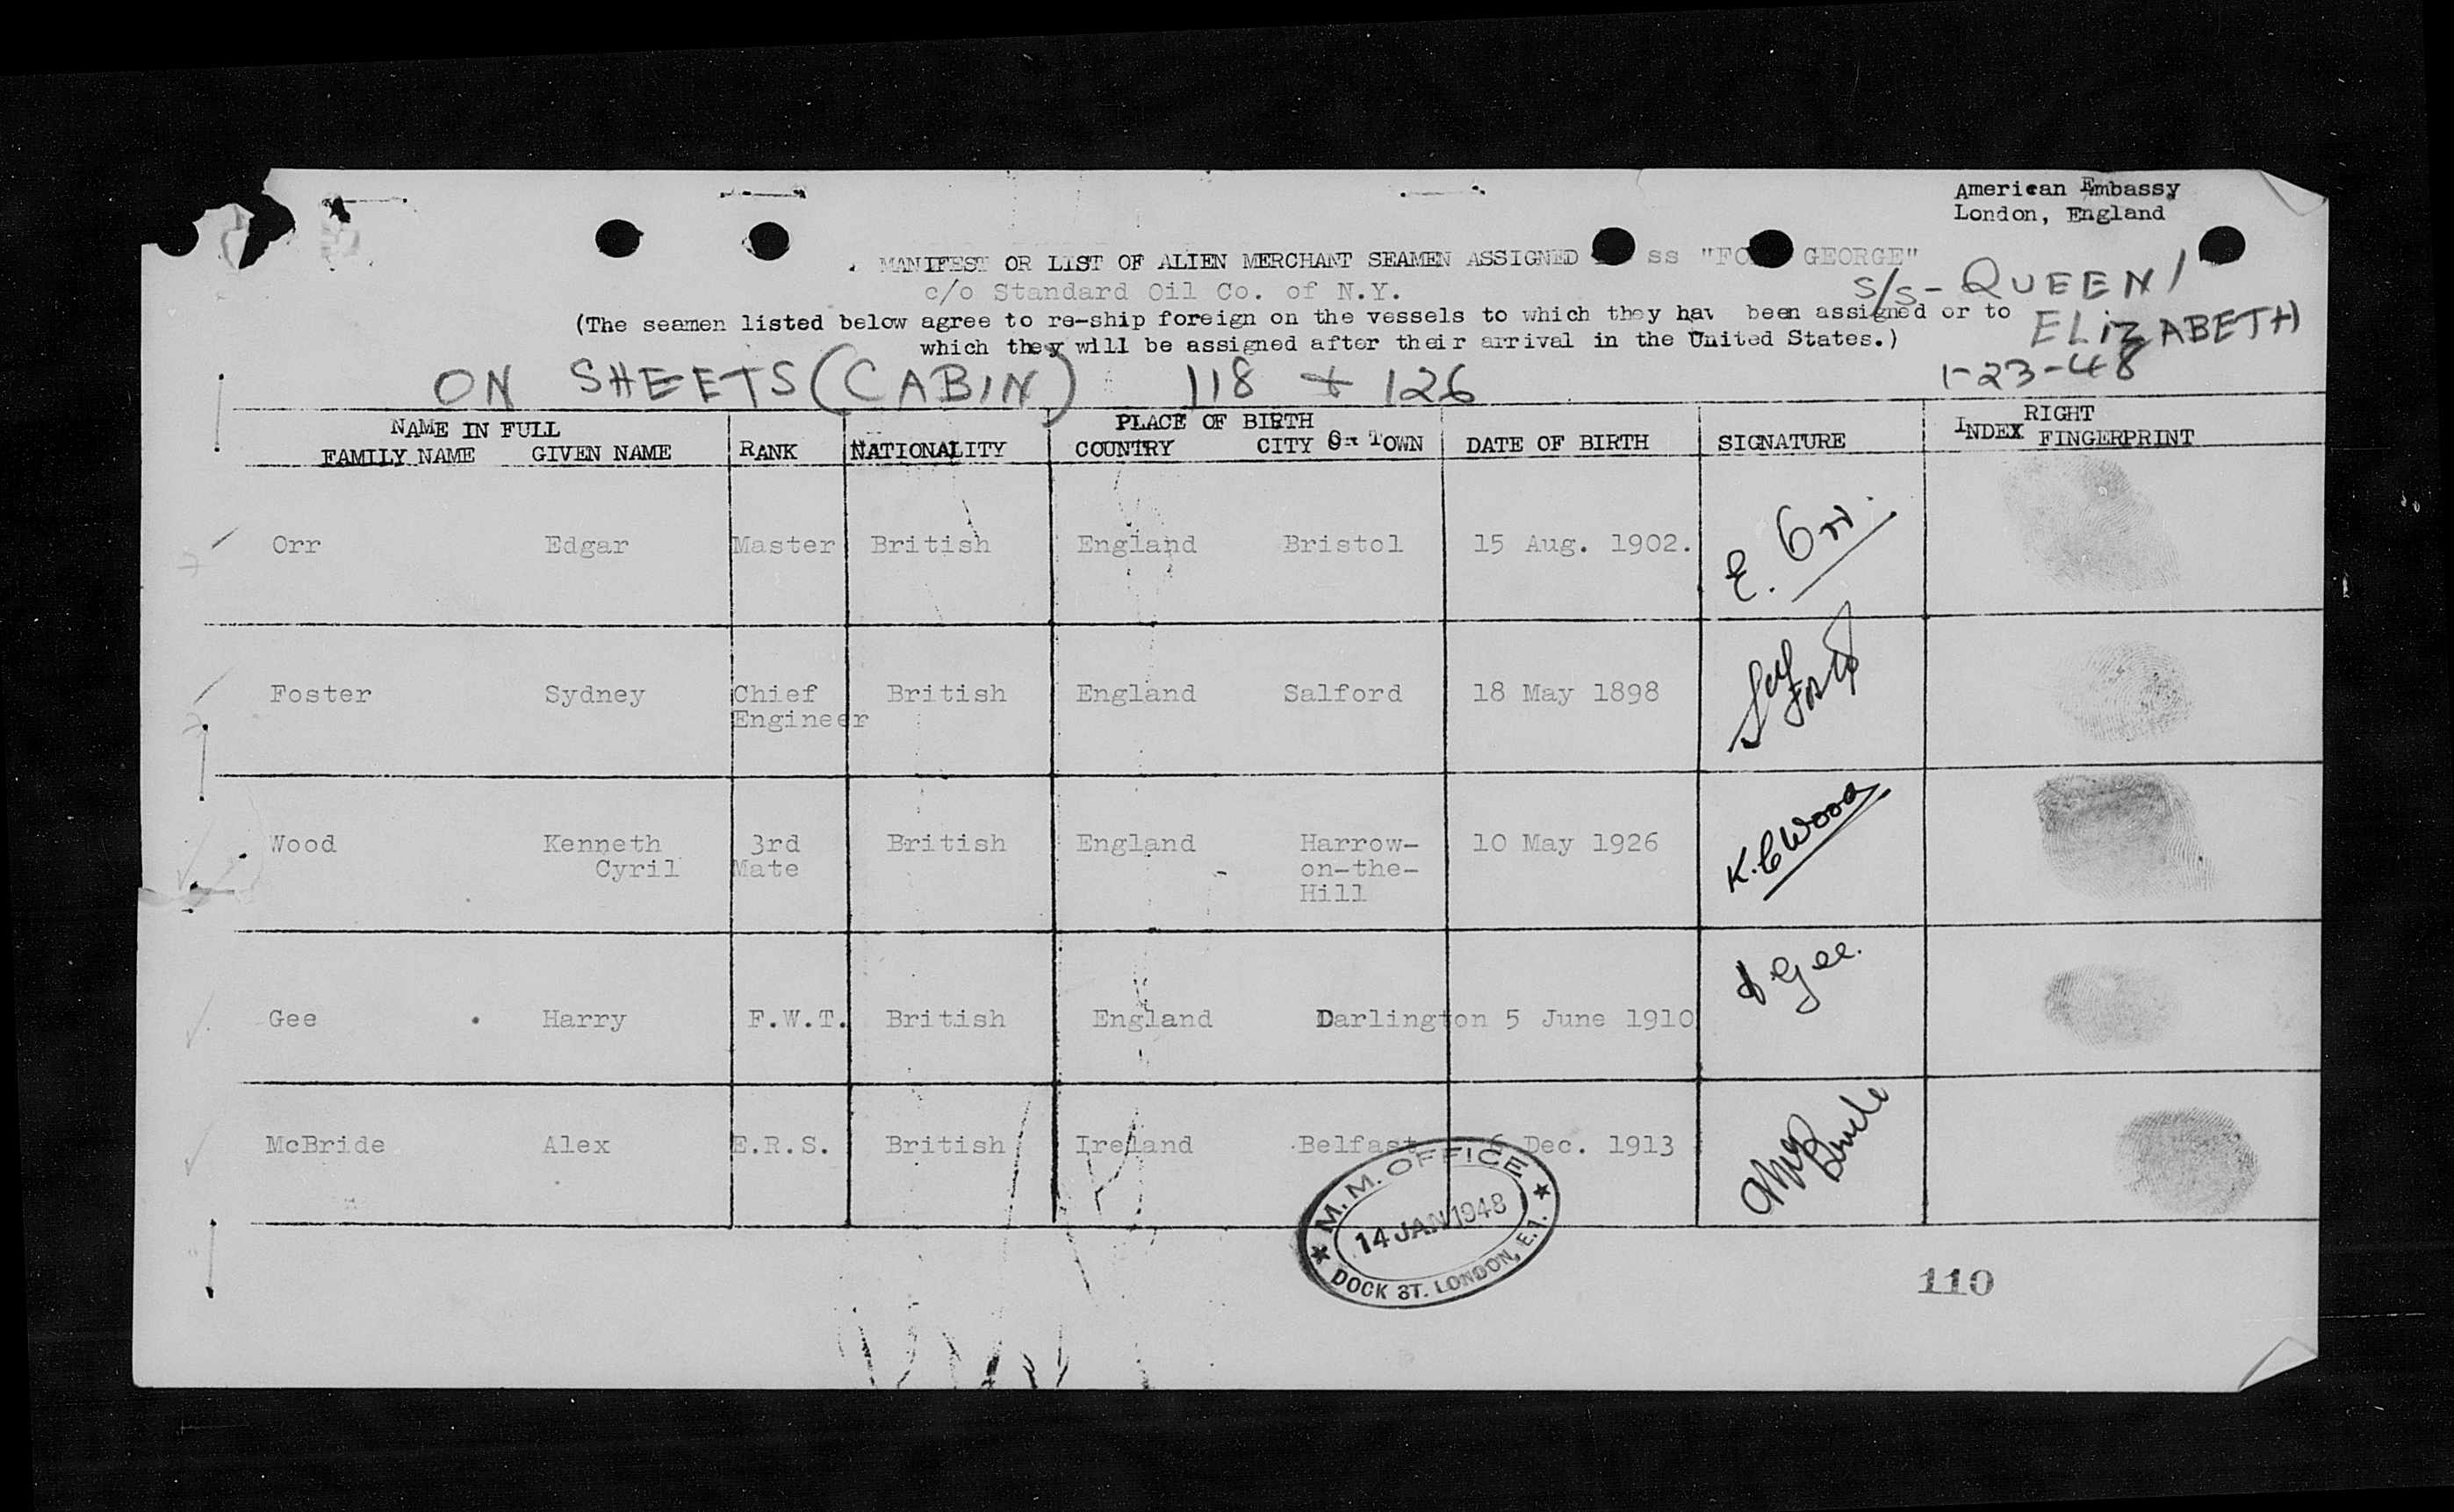 American Embassy
London, England
MANIFEST OR LIST OF ALIEN MERCHANT SEAMEN ASSIGNED ss "FO GEORGE"
c/o Standard Oil Co. of N.Y.
s/s - QUEEN
ELIZABETH
1-23-48
(The seamen listed below agree to re-ship foreign on the vessels to which they hav been assigned or to
which they will be assigned after their arrival in the United States.)
ON SHEETS (CABIN) 118 + 126
NAME IN FULL PLACE OF BIRTH RIGHT
FAMILY NAME GIVEN NAME RANK NATIONALITY COUNTRY CITY Or TOWN DATE OF BIRTH SIGNATURE INDEX FINGERPRINT
Orr Edgar Master British England Bristol 15 Aug. 1902. E. Orr.
Foster Sydney Chief British England Salford 18 May 1898
Engineer
Wood Kenneth 3rd British England Harrow- 10 May 1926 K. C Wood
Cyril Mate on-the-
Hill
Gee Harry F.W.T. British England Darlington 5 June 1910 Gee.
McBride Alex E.R.S. British Ireland Belfast 6 Dec. 1913 McBride
M.M. OFFICE
14 JAN 1948
DOCK ST. LONDON, E.1.
110